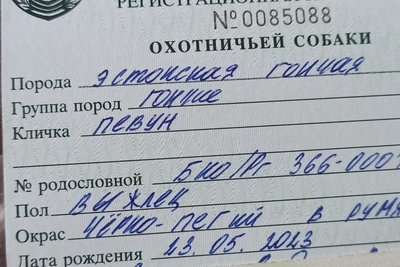 РЕГИСТРАЦИОННАЯ
№0085088
ОХОТНИЧЬЕЙ СОБАКИ
Порода эстонская гончая
Группа пород гончие
Кличка Певун
№ родословной БКО/Рг 366-000
Пол выжлец
Окрас Чёрно-пегий в румя
Дата рождения 23.05.2023